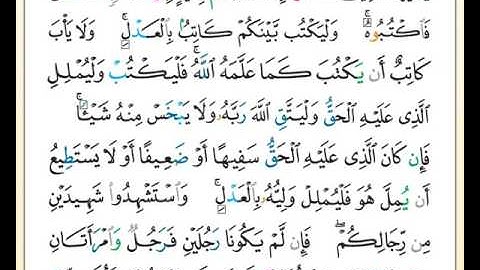 فَٱكْتُبُوهُ ۚ وَلْيَكْتُب بَّيْنَكُمْ كَاتِبٌۢ بِٱلْعَدْلِ ۚ وَلَا يَأْبَ
كَاتِبٌ أَن يَكْتُبَ كَمَا عَلَّمَهُ ٱللَّهُ ۚ فَلْيَكْتُبْ وَلْيُمْلِلِ
ٱلَّذِى عَلَيْهِ ٱلْحَقُّ وَلْيَتَّقِ ٱللَّهَ رَبَّهُۥ وَلَا يَبْخَسْ مِنْهُ شَيْـًٔا ۚ
فَإِن كَانَ ٱلَّذِى عَلَيْهِ ٱلْحَقُّ سَفِيهًا أَوْ ضَعِيفًا أَوْ لَا يَسْتَطِيعُ
أَن يُمِلَّ هُوَ فَلْيُمْلِلْ وَلِيُّهُۥ بِٱلْعَدْلِ ۚ وَٱسْتَشْهِدُوا۟ شَهِيدَيْنِ
مِن رِّجَالِكُمْ ۖ فَإِن لَّمْ يَكُونَا رَجُلَيْنِ فَرَجُلٌ وَٱمْرَأَتَانِ